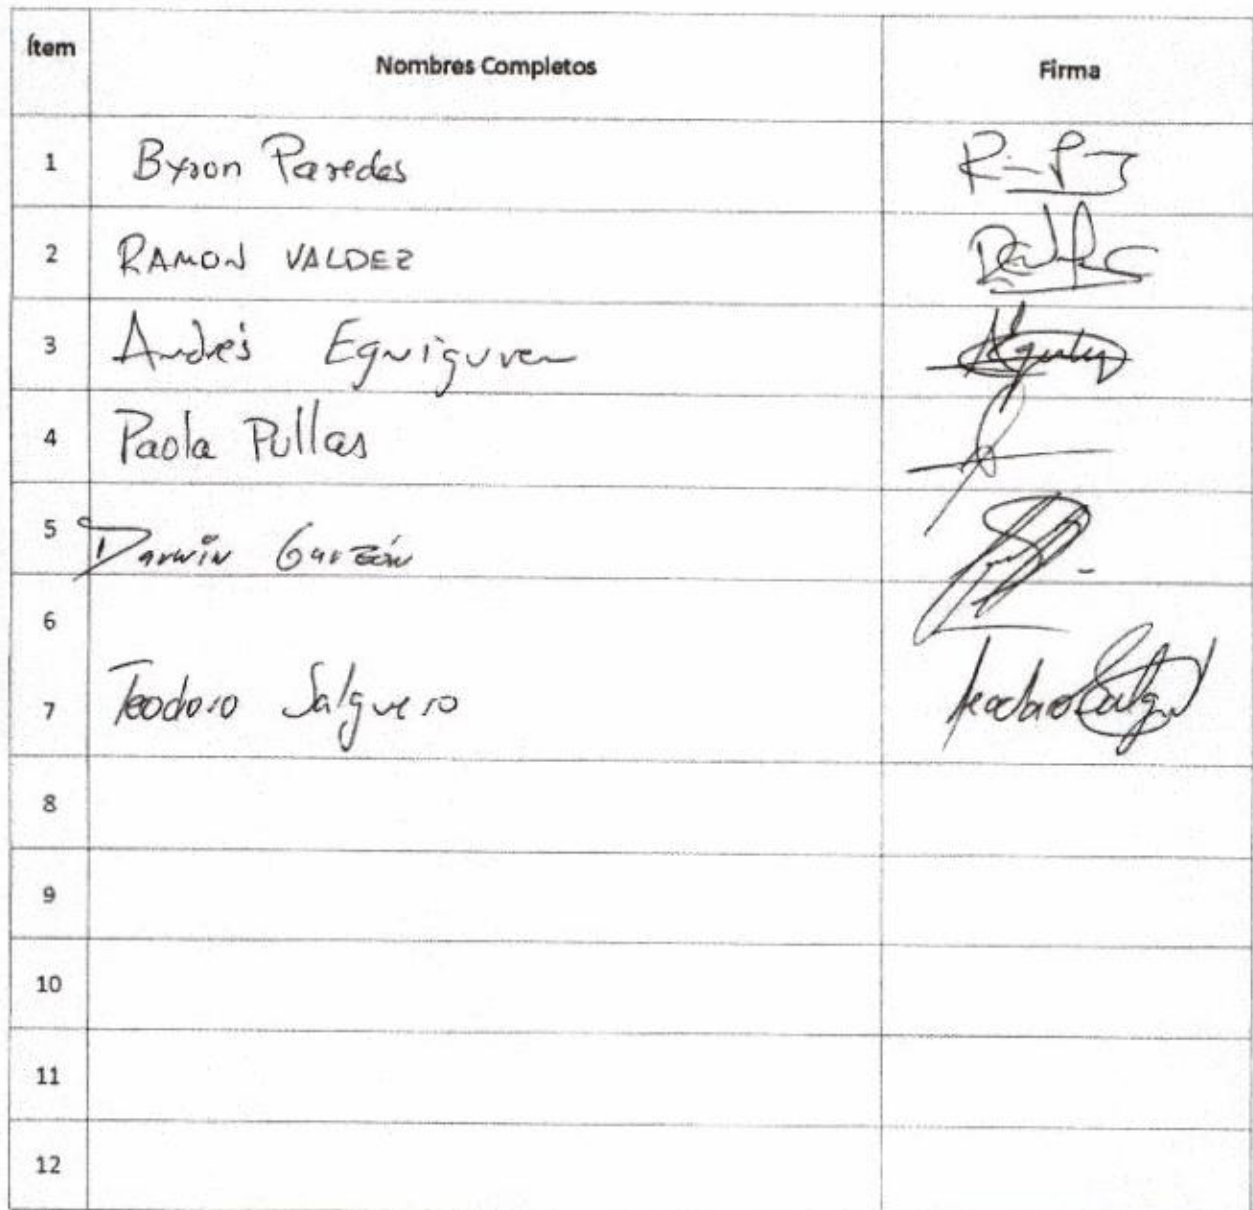 Ítem Nombres Completos Firma
1 Byron Paredes
2 RAMON VALDEZ
3 Andrés Eguiguren
4 Paola Pullas
5 Darwin Garzón
6
7 Teodoro Salguero
8
9
10
11
12